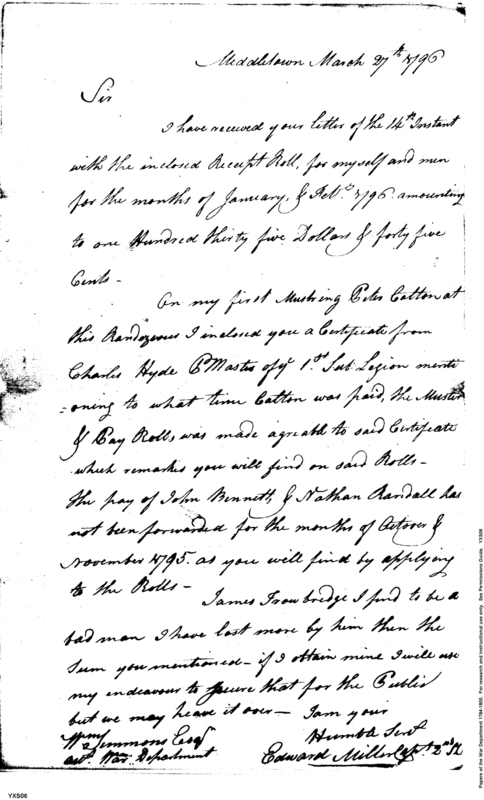 Middletown March 27th 1796
Sir
I have received your letter of the 14th Instant
with the inclosed Receipt Roll, for myself and men
for the months of January, & Feby. 1796. amounting
to one Hundred thirty five Dollars & forty five
Cents -
On my first Mustring Peter Catton at
this Randezvous I inclosed you a Certificate from
Charles Hyde PMaster of ye 1st Sub Legion menti
=oning to what time Catton was paid, the Muster
& Pay Rolls was made agreable to said Certificate
which remarks you will find on said Rolls -
the pay of John Bennett, & Nathan Randall has
not been forwarded for the months of October &
November 1795. as you will find by applying
to the Rolls -
James Trowbridge I find to be a
bad man I have lost more by him then the
Sum you mentioned - if I obtain mine I will use
my endeavours to secure that for the Public
but we may heave it over - I am your
Humble Servt.
Wm Simmons Esqr
acct. War Department
Edward Miller Capt. 2nd
YXS06
Papers of the War Department 1784-1800. For research and instructional use only. See Permissions Guide. YXS06